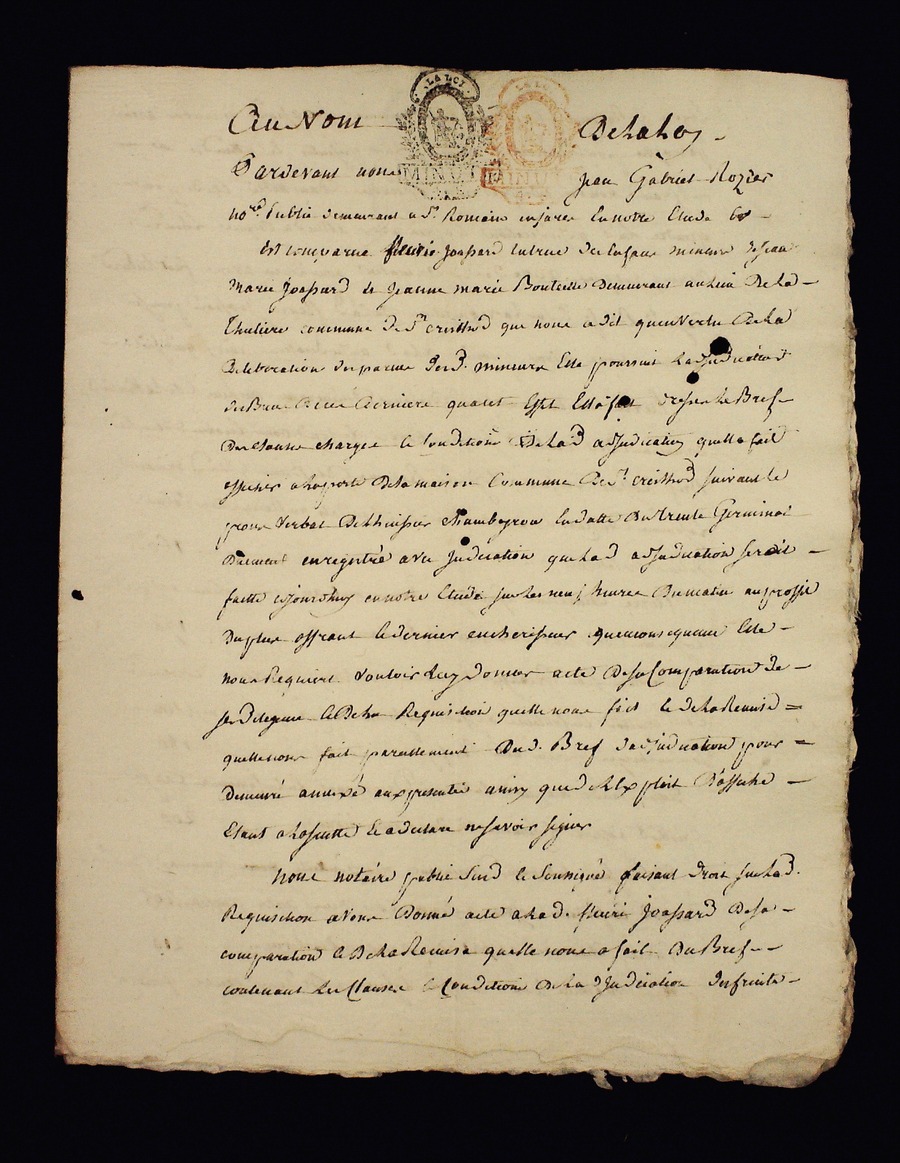 Au Nom De la Loy
LA LOI
LA LOI
MINUT
MINUT
Pardevant nous Jean Gabriel Rozier
no.re public demeurant a St. Romain en jarez en notre Etude
Est comparue fleurie Joassard tutrice des enfans mineurs de Jean
Marie Joassard et Jeanne marie Bouteille Demeurant au lieu De la
Thuliere commune de St. cristhod que nous a dit qu'en Vertu De la
Deliberation des parens desd. mineurs Elle poursuit Ladjudication
Des Biens Elle a fait dresser le Bref
Des Clauses charges et Conditions De Lad adjudication quelle a fait
afficher a la porte De la maison Commune De St. cristhod suivant le
proces Verbal De Lhuissier Chambeyron en datte Du trente Germinal
Duement enregistré avec Judication que Lad adjudication seroit
faitte aujourdhuy en notre Etude sur Les neuf heures Du matin au proffit
Du plus offrant et dernier encherisseur que consequence Elle
nous Requiert Vouloir Luy Donner acte De sa Comparution De
ses diligences et De la Requisition quelle nous fait et de la Remise
quelle nous fait parallement Dud. Bref dadjudication pour
Demeuré annexé aux presentes ainsy que de l'Exploit D'affiche
Etant a la suitte et a declaré ne savoir signer
Nous notaire public Susd et Soussigné faisant Droit sur Lad.
Requisition avons Donné acte a Lad. fleuri Joassard De sa
comparution et De la Remise quelle nous a fait Du Bref
contenant Les Clauses et Conditions De La djudication des fruits